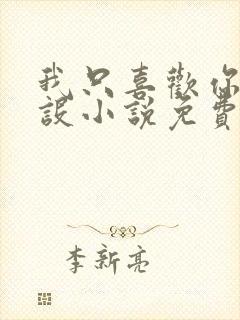 我只喜歡你
設小說免費
李新亮